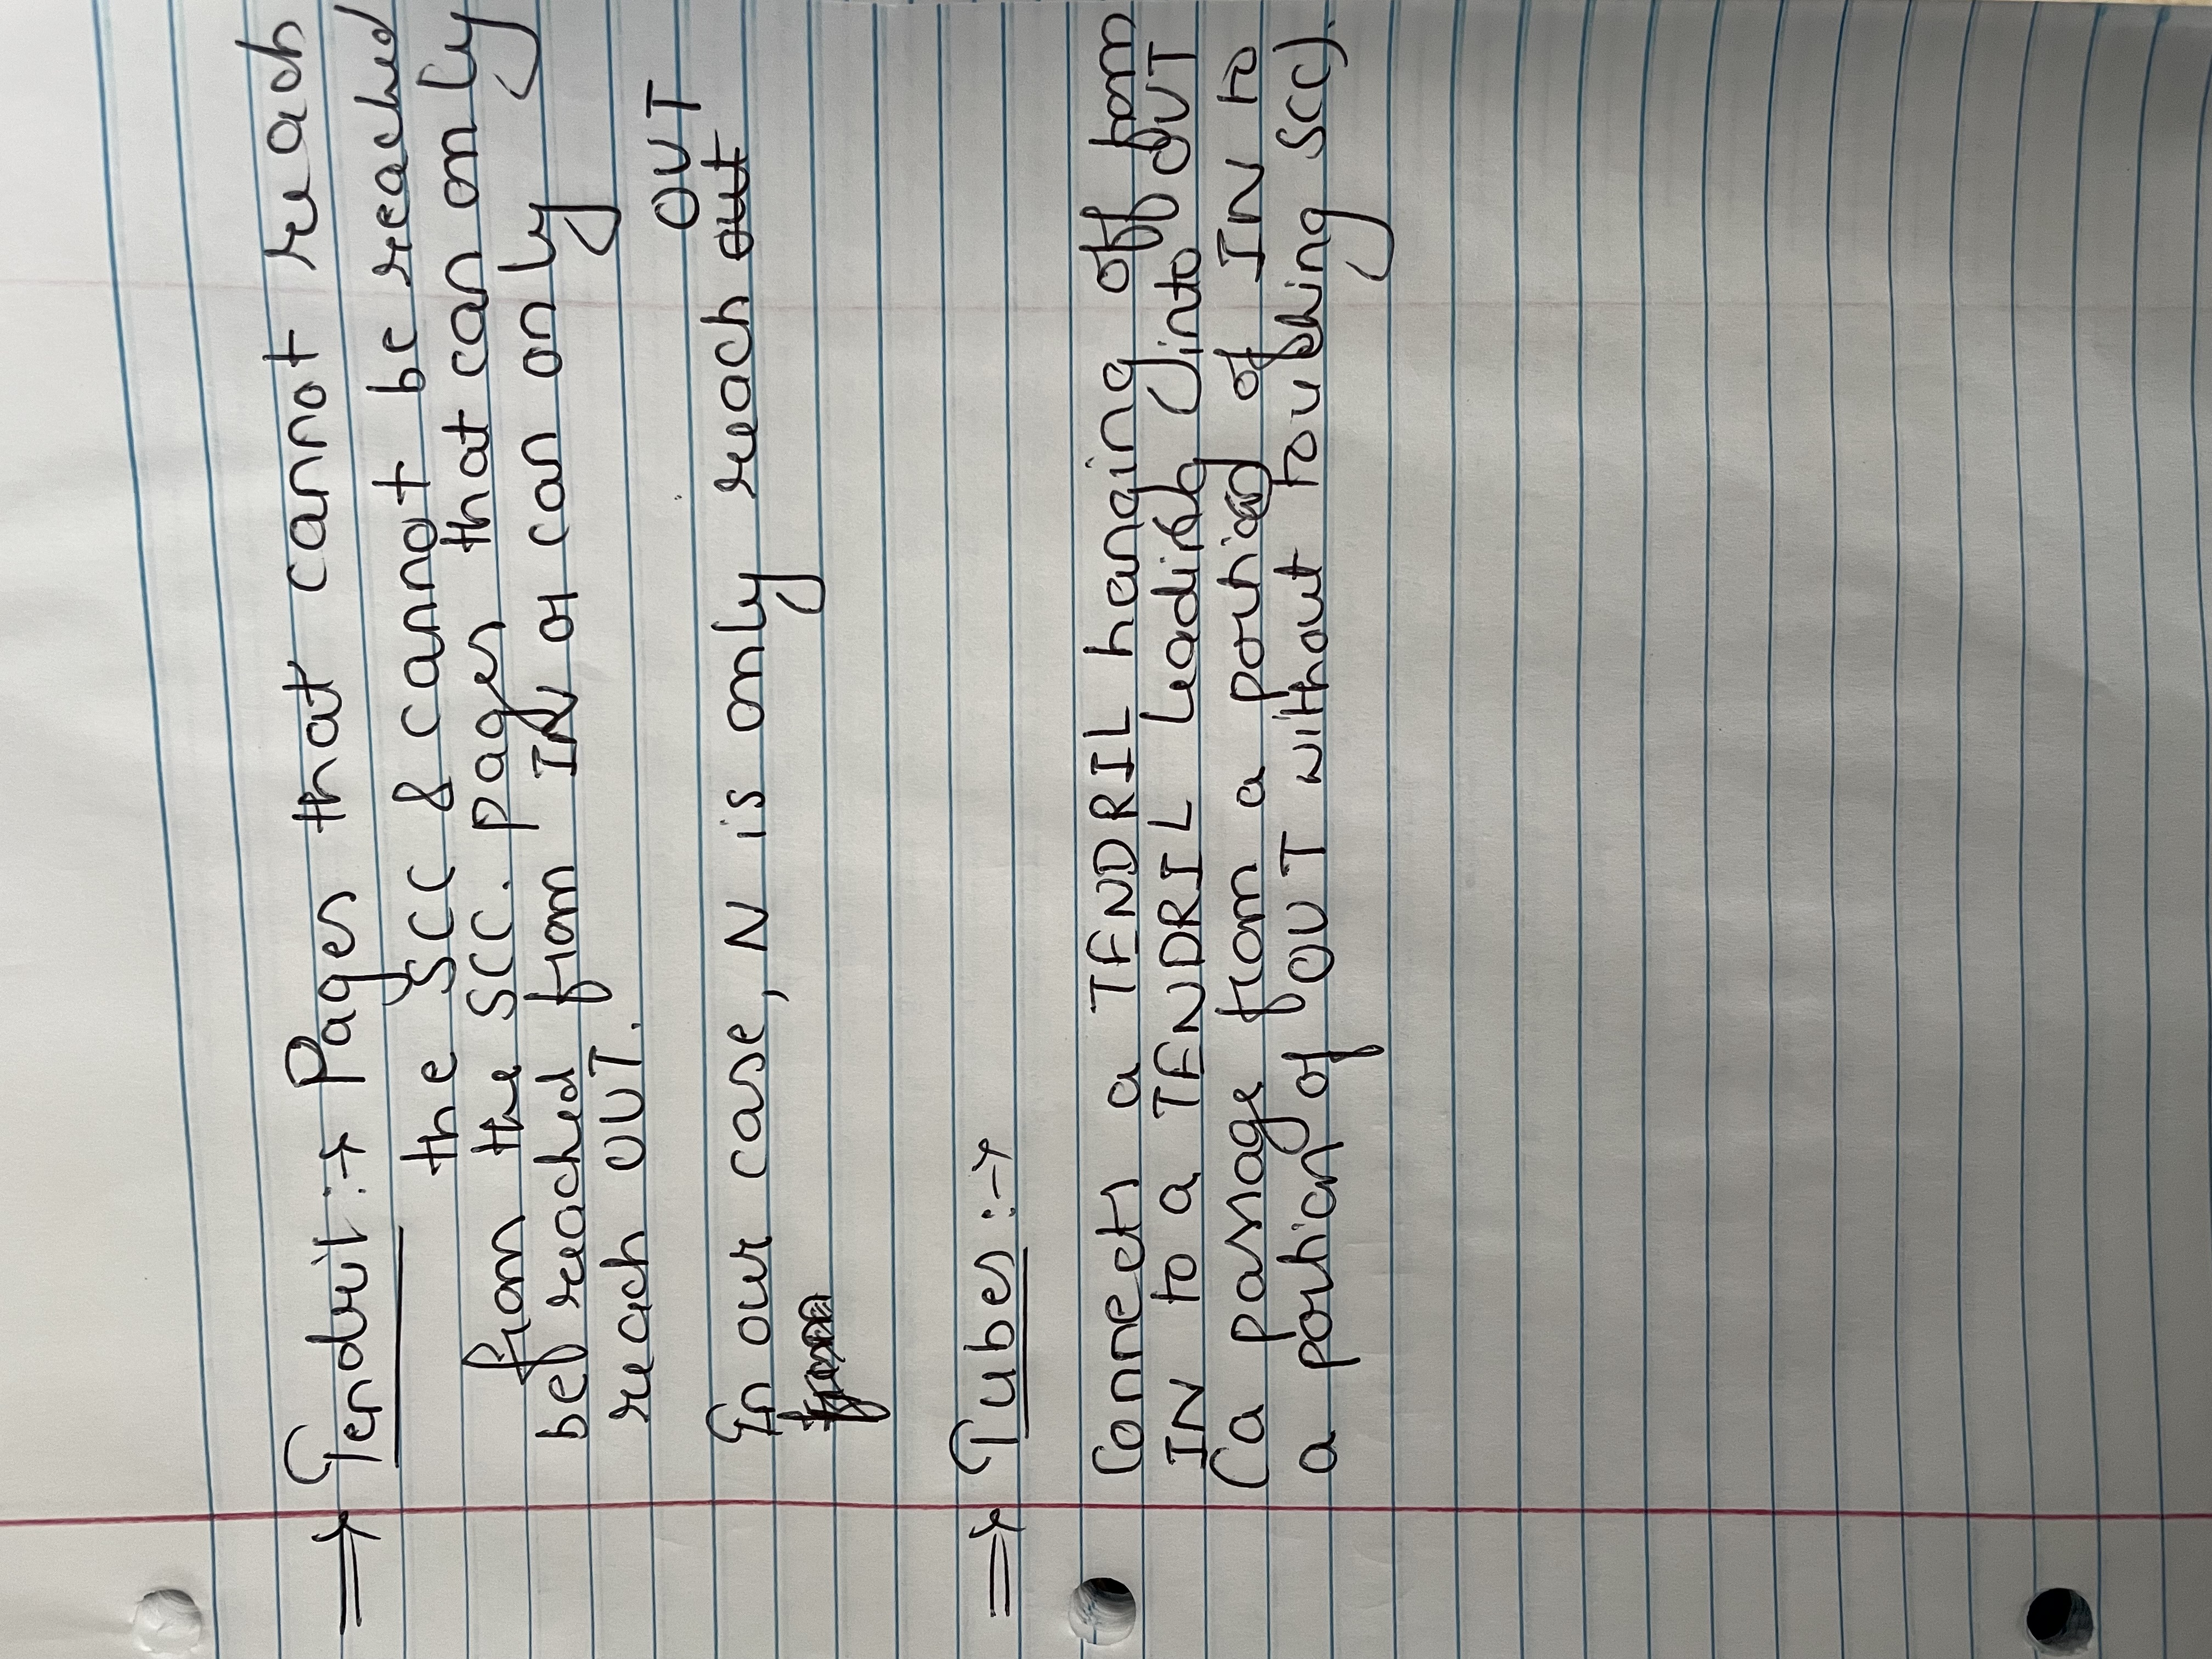 ⇒ Tendril :→ Pages that cannot reach
the SCC & cannot be reached
from the SCC. pages that can only
be reached from IN or can only
reach OUT.
OUT
In our case, N is only reach out
from
⇒ Tubes :→
Connects a TENDRIL hanging off from
IN to a TENDRIL leading into OUT
(a passage from a portion of IN to
a portion of OUT without touching SCC).